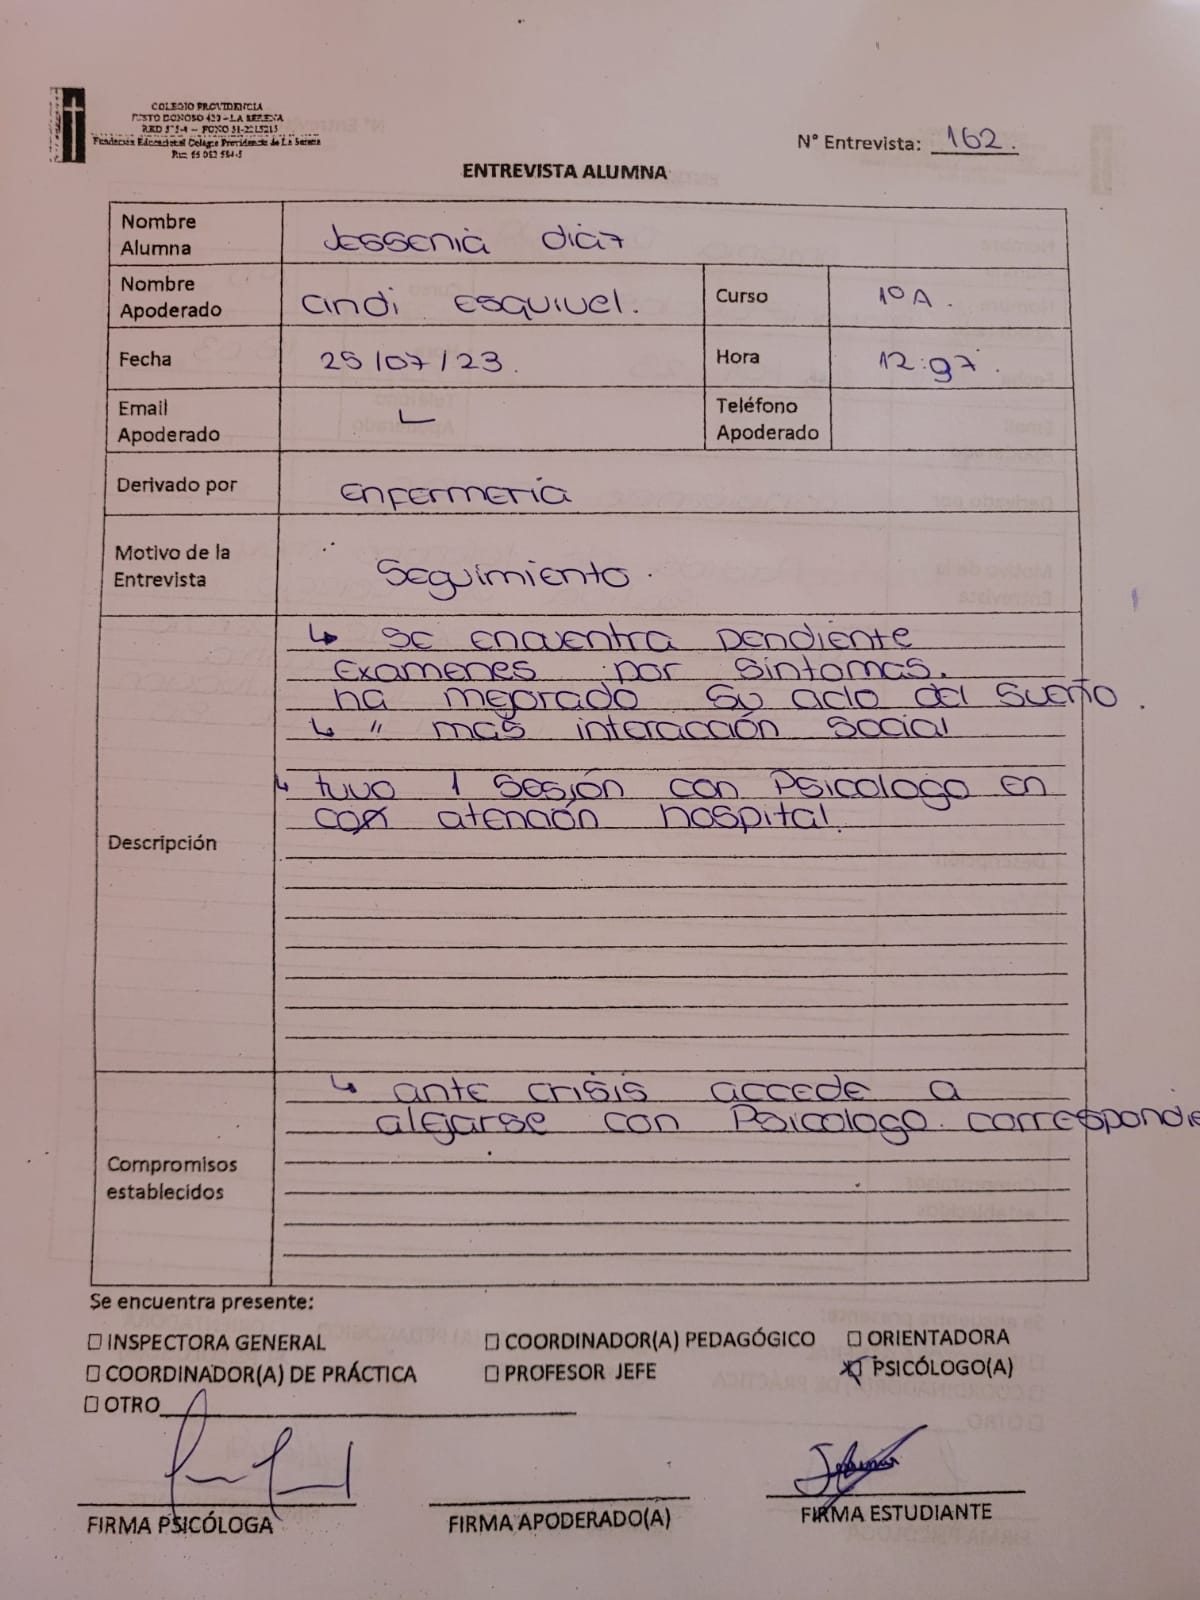 COLEGIO PROVIDENCIA
JUSTO DONOSO 420 – LA SERENA
Fundación Educacional Colegio Providencia de La Serena
N° Entrevista: 162.
ENTREVISTA ALUMNA
Nombre Alumna JESSENIA DIAZ
Nombre Apoderado CINDI ESQUIVEL. Curso 1°A.
Fecha 25/07/23. Hora
Email Apoderado Teléfono Apoderado
Derivado por ENFERMERÍA
Motivo de la Entrevista SEGUIMIENTO.
Descripción
↳ SE ENCUENTRA PENDIENTE
EXAMENES POR SINTOMAS.
HA MEJORADO SU CICLO DEL SUEÑO.
↳ " MAS INTERACCIÓN SOCIAL
↳ TUVO 1 SESIÓN CON PSICOLOGO EN
ATENCIÓN HOSPITAL.
Compromisos establecidos
↳ ANTE CRISIS ACCEDE A
CON PSICOLOGO.
Se encuentra presente:
☐ INSPECTORA GENERAL ☐ COORDINADOR(A) PEDAGÓGICO ☐ ORIENTADORA
☐ COORDINADOR(A) DE PRÁCTICA ☐ PROFESOR JEFE ☒ PSICÓLOGO(A)
☐ OTRO
FIRMA PSICÓLOGA FIRMA APODERADO(A) FIRMA ESTUDIANTE